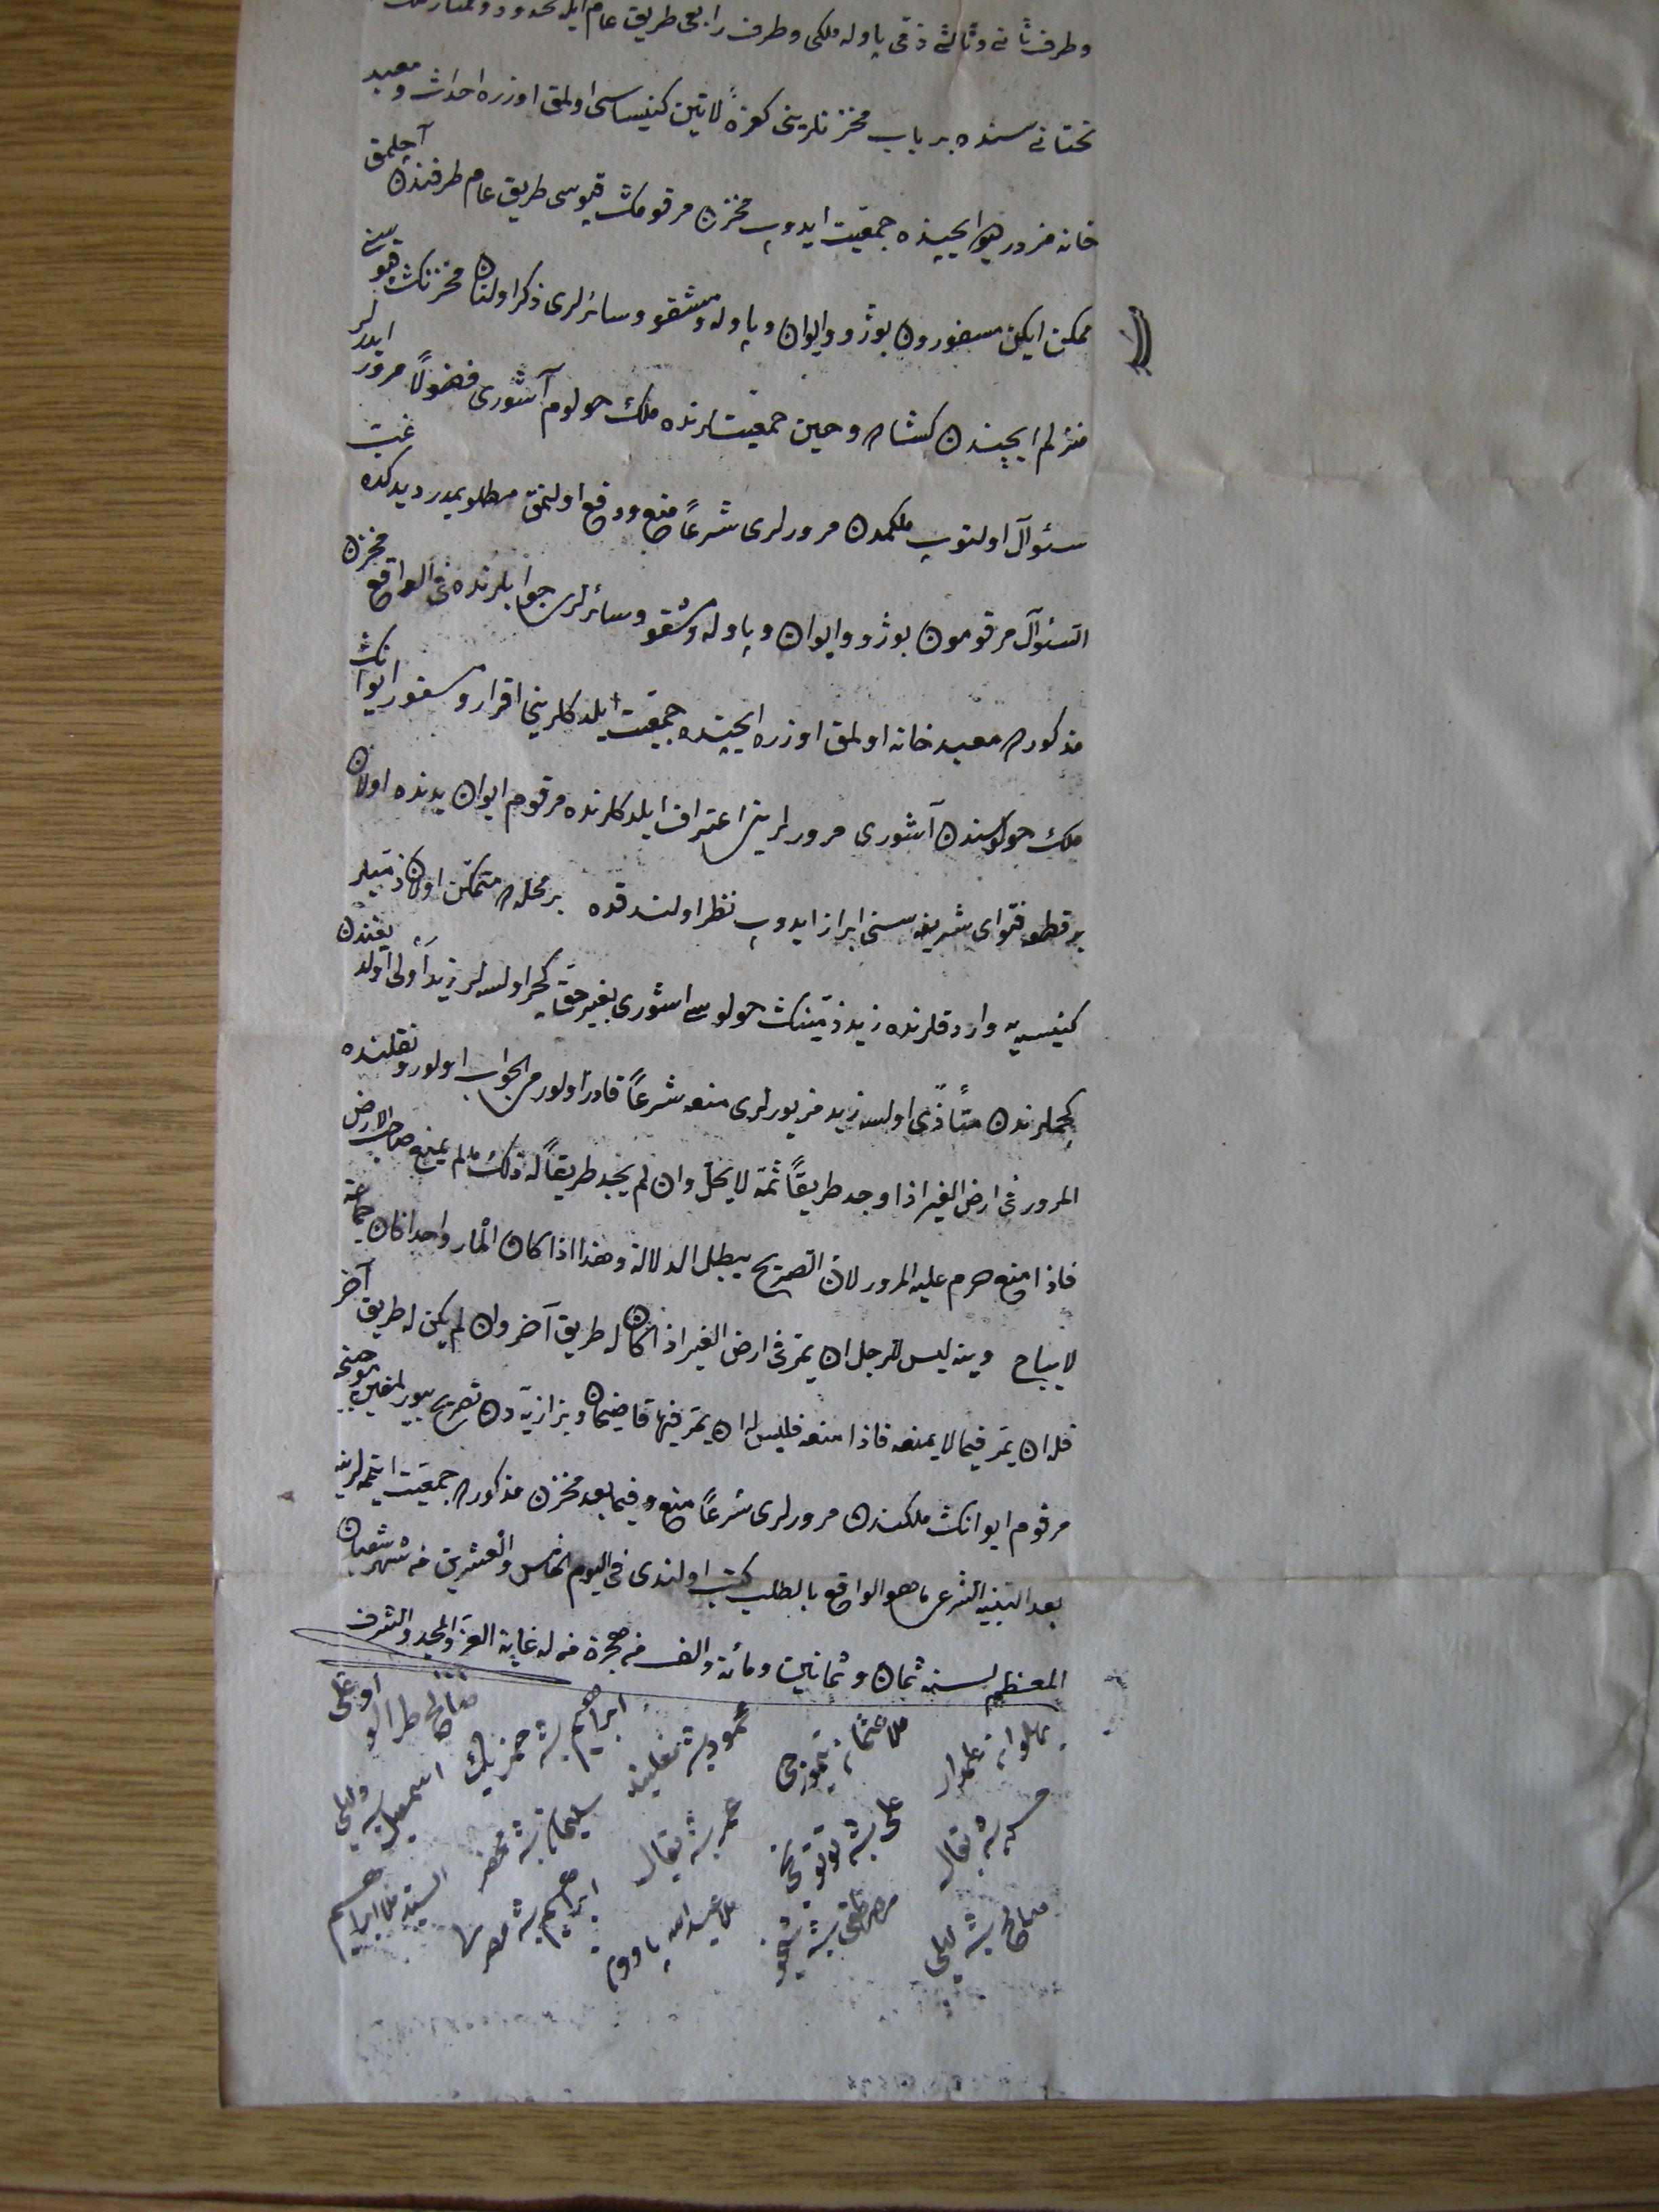 وطرف ثانی وثالثی ذمی پاوله ملکی وطرف رابعی طریق عام ایله محدود وممتاز
تحتانی سنده بر باب مخزنلرینی کفرهٔ لاتین کنیساسی اولمق اوزره احداث ومعبد
خانه مزبور هوا ایچنده جمعیت ایدوب مخزن مرقومك قپوسی طریق عام طرفندن آچلمق
ممکن ایکن مسفورون بوژو وایوان وپاوله ومشقو وسائرلری ذکر اولنان مخزنك قپوسن
منزلم ایچندن کشاد وحین جمعیتلرنده ملك حولوم آشوری فضولاً مرور ایدرلر
سئوآل اولنوب ملکمدن مرورلری شرعاً منع ودفع اولنمق مطلوبمدر دیدکده غب
السئوآل مرقومون بوژو وایوان وپاوله ومشقو وسائرلری جوابلرنده فی الواقع مخزن
مذکوره معبدخانه اولمق اوزره ایچنده جمعیت ایلدکلرینی اقرار ومسفور ایوانك
ملك حولوسندن آشوری مرورلرینی اعتراف ایلدکلرنده مرقوم ایوان یدنده اولان
بر قطعه فتوای شریفه سنی ابراز ایدوب نظر اولندقده بر محله متمکن اولان ذمیلر
کنیسه یه واردقلرنده زید ذمینك حولوسی اشوری بغیر حق کچر اولسه لر زید اولدیغندن
کچملرندن متأذی اولسه زید مزبورلری منعه شرعاً قادر اولورمی الجواب اولور ونقلنده
المرور فی ارض الغیر اذا وجد طریقاً ثمة لا یحل وان لم یجد طریقاً له ذلك مالم یمنع صاحب الارض
فاذا منع حرم علیه المرور لان الصریح یبطل الدلالة وهذا اذا کان المار واحدا فان جماعة
لا یباح وینه لیس للرجل ان یمر فی ارض الغیر اذا کان له طریق آخر وان لم یکن له طریق آخر
فله ان یمر فیما لا یمنعه فاذا منعه فلیس له ان یمر فیها قاضیخان وبزازیه دن تصریح بیورلمغین موجبنجه
مرقوم ایوانك ملکندن مرورلری شرعاً منع وفیما بعد مخزن مذکوره جمعیت ایتمه لرینه
بعد التنبیه الشرعی ماهو الواقع بالطلب کتب اولندی فی الیوم الخامس والعشرین من شهر شعبان
المعظم لسنه ثمان وثمانین ومائة والف من هجرة من له غایة العز والمجد والشرف
علمدار ملا عثمان محمود بشه ابراهیم بشه حمزه بك صالح اوغلی
حسن بشه بقال علی بشه توتونجی عمر بشه بقال سلیمان بشه محضر اسمعیل بشه
صالح بشه مصطفی بشه ملا عبدالله ابراهیم بشه السید ملا ابراهیم